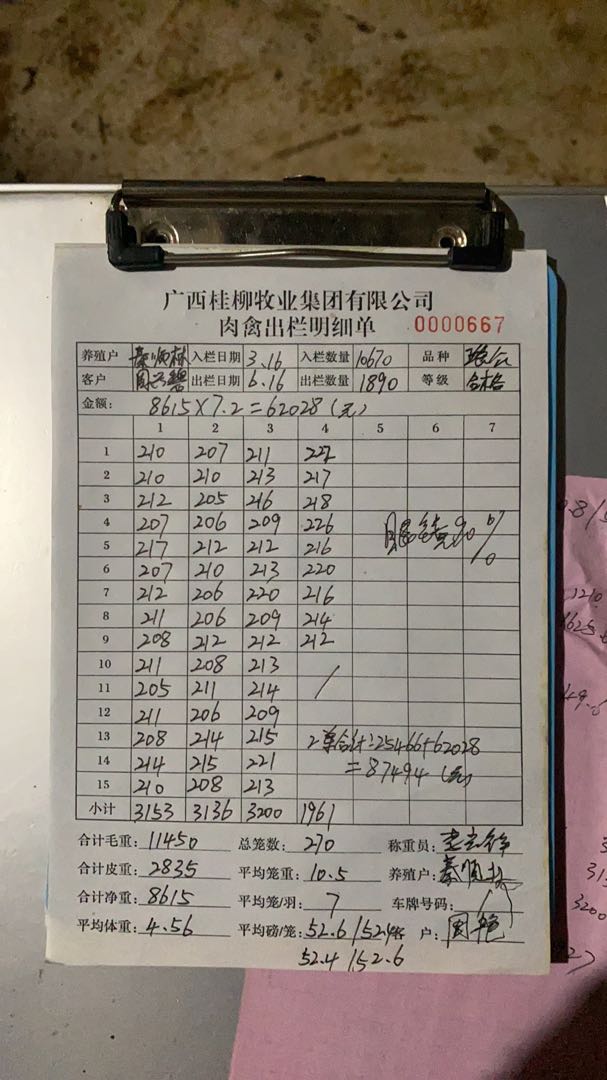 广西桂柳牧业集团有限公司
肉禽出栏明细单 0000667
养殖户 秦顺林 入栏日期 3.16 入栏数量 10670 品种
客户 出栏日期 6.16 出栏数量 1890 等级 合格
金额: 8615×7.2=62028(元)
1 2 3 4 5 6 7
1 210 207 211
2 210 210 213 217
3 212 205 216 218
4 207 206 209 226 90%
5 217 212 212 216
6 207 210 213 220
7 212 206 220 216
8 211 206 209 214
9 208 212 212 212
10 211 208 213
11 205 211 214 /
12 211 206 209
13 208 214 215 2单合计:25466+62028
14 214 215 221 =87494(元)
15 210 208 213
小计 3153 3136 3200 1961
合计毛重: 11450 总笼数: 270 称重员:
合计皮重: 2835 平均笼重: 10.5 养殖户: 秦顺林
合计净重: 8615 平均笼/羽: 7 车牌号码:
平均体重: 4.56 平均磅/笼: 52.6/52.4 客户:
52.4/52.6
1210
3200